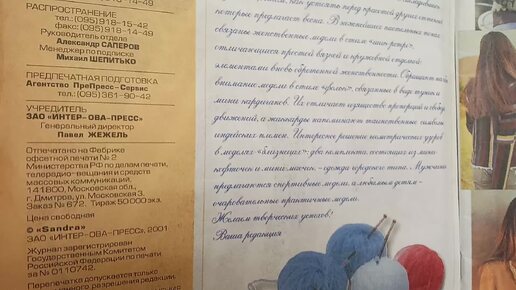 РАСПРОСТРАНЕНИЕ
тел.: (095)918-15-42
факс: (095)918-14-49
Руководитель отдела
Александр САПЕРОВ
Менеджер по подписке
Михаил ШЕПИТЬКО
ПРЕДПЕЧАТНАЯ ПОДГОТОВКА
Агентство ПреПресс-Сервис
тел.: (095)361-90-42
УЧРЕДИТЕЛЬ
ЗАО «ИНТЕР-ОВА-ПРЕСС»
Генеральный директор
Павел ЖЕЖЕЛЬ
Отпечатано на Фабрике
офсетной печати № 2
Министерства РФ по делам печати,
телерадио-вещания и средств
массовых коммуникаций.
141800, Московская обл.,
г. Дмитров, ул. Московская 3.
Заказ № 672. Тираж 50000 экз.
Цена свободная
© «Sandra»
ЗАО «ИНТЕР-ОВА-ПРЕСС», 2001
Журнал зарегистрирован
Государственным Комитетом
Российской Федерации по печати
за № 0110742.
Перепечатка допускается только
разрешения редакции,
которые предлагает весна. В нежнейших пастельных тонах
связаны женственные модели в стиле
отличающиеся простой вязкой и кружевной отделкой:
элементами вновь обретенной женственности. Обращают на себя
внимание модели в стиле связанные в виде туник и
мини кардиганов. Их отличает изящество пропорций и свобода
движений, а жаккарды напоминают таинственные символы
индейских племен. Интересное решение геометрических узоров
в моделях-«близнецах»: два комплекта, состоящих из мини-
одежда городского типа. Мужчинам
предлагаются спортивные модели, а любимым детям -
очаровательные практичные модели.
Желаем творческих успехов!
Ваша редакция